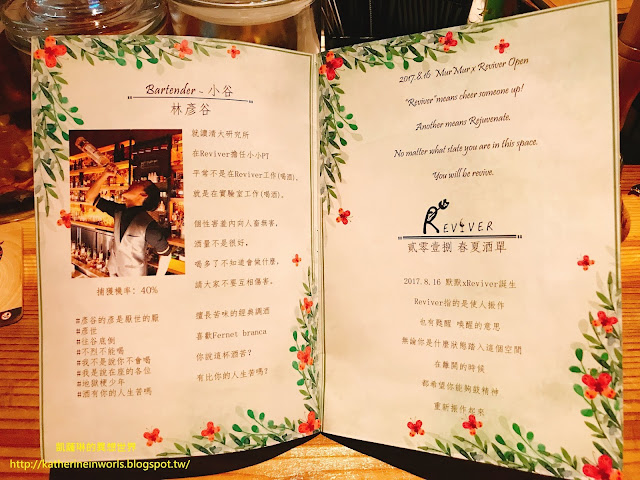 Bartender ~ 小谷
林彥谷
就讀清大研究所
在Reviver擔任小小PT
平常不是在Reviver工作(喝酒),
就是在實驗室工作(喝酒)。
個性害羞內向人畜無害,
酒量不是很好,
喝多了不知道會做什麼,
請大家不要互相傷害。
擅長苦味的經典調酒
喜歡Fernet branca
你說這杯酒苦?
有比你的人生苦嗎?
捕獲機率: 40%
#彥谷的彥是厭世的厭
#彥世
#往谷底倒
#不烈不能喝
#我不是說你不會喝
#我是說在座的各位
#地獄梗少年
#酒有你的人生苦嗎
2017.8.16 MurMur x Reviver Open
"Reviver" means cheer someone up!
Another means Rejuvenate.
No matter what state you are in this space.
You will be revive.
REVIVER
貳零壹捌 春夏酒單
2017.8.16 默默xReviver誕生
Reviver指的是使人振作
也有甦醒 喚醒的意思
無論你是什麼狀態踏入這個空間
在離開的時候
都希望你能夠鼓起精神
重新振作起來
凱薩琳的異想世界
http://katherineinworls.blogspot.tw/